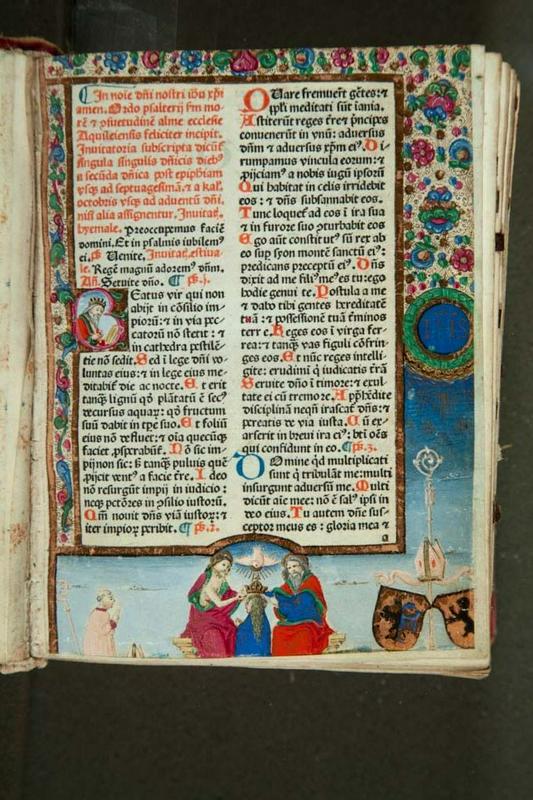 In noie dñi nostri ihu xpi
amen. Ordo psalterij fm mo-
rẽ ⁊ ꝯsuetudinẽ alme ecclesie
Aquileiensis feliciter incipit.
Inuitatoria subscripta dicũt̃
singula singulis dñicis diebꝰ
a secũda dñica post epiphiam
vsqꝫ ad septuagesimã. ⁊ a kal.
octobris vsqꝫ ad aduentũ dñi.
nisi alia assignentur. Inuitat.
hyemale. Preoccupemus faciẽ
domini. Et in psalmis iubilemꝰ
ei. ps. Uenite. Inuitat. estiua-
le. Regẽ magnũ adoremꝰ dñm.
Añ. Seruite dño. ps. j.
Beatus vir qui non
abijt in cõsilio im
piorũ: ⁊ in via pec
catorũ nõ stetit: ⁊
in cathedra pestilẽ-
tie nõ sedit. Sed ĩ lege dñi vo-
luntas eius: ⁊ in lege eius me-
ditabit̃ die ac nocte. Et erit
tanqꝫ lignũ qõ plãtatũ ẽ sec̃ꝰ
decursus aquaꝝ: qõ fructum
suũ dabit in tp̃e suo. Et foliũ
eius nõ defluet: ⁊ oĩa quecũqꝫ
faciet ꝓsperabũt̃. Nõ sic im-
pij non sic: sꝫ tanqꝫ puluis quẽ
ꝓijcit ventꝰ a facie tr̃e. Ideo
nõ resurgũt impij in iudicio:
neqꝫ pctõres in ꝯsilio iustorũ.
Qm̃ nouit dñs viã iustoꝝ: ⁊
iter impioꝝ peribit. ps. 2.
Quare fremuerũt gẽtes: ⁊
ppl'i meditati sũt iania.
Astiterũt reges tr̃e ⁊ prĩcipes
conuenerũt in vnũ: aduersus
dñm ⁊ aduersus xp̃m eiꝰ. Di-
rumpamus vincula eorum: ⁊
ꝓijciamꝰ a nobis iugũ ipsorũ
Qui habitat in celis irridebit
eos: ⁊ dñs subsannabit eos.
Tunc loquet̃ ad eos ĩ ira sua
⁊ in furore suo ꝯturbabit eos
Ego aũt constitutꝰ sũ rex ab
eo sup syon montẽ sanctũ eiꝰ:
predicans preceptũ eiꝰ. Dñs
dixit ad me filiꝰ meꝰ es tu: ego
hodie genui te. Postula a me
⁊ dabo tibi gentes hereditatẽ
tuã: ⁊ possessionẽ tuã t̃minos
terre. Reges eos ĩ virga fer-
rea: ⁊ tanqꝫ vas figuli cõfrin-
ges eos. Et nũc reges intelli-
gite: erudimĩ q̃ iudicatis tr̃ã
Seruite dño ĩ timore: ⁊ exul-
tate ei cũ tremore. Apphẽdite
disciplinã neqñ irascat̃ dñs: ⁊
pereatis de via iusta. Cũ ex-
arserit in breui ira eiꝰ: bt̃i oẽs
qui confidunt in eo. ps. 3.
Domine qd multiplicati
sunt q̃ tribulãt me: multi
insurgunt aduersũ me. Multi
dicũt aĩe mee: nõ ẽ salꝰ ipsi in
deo eius. Tu autem dñe sus-
ceptor meus es: gloria mea ⁊
a